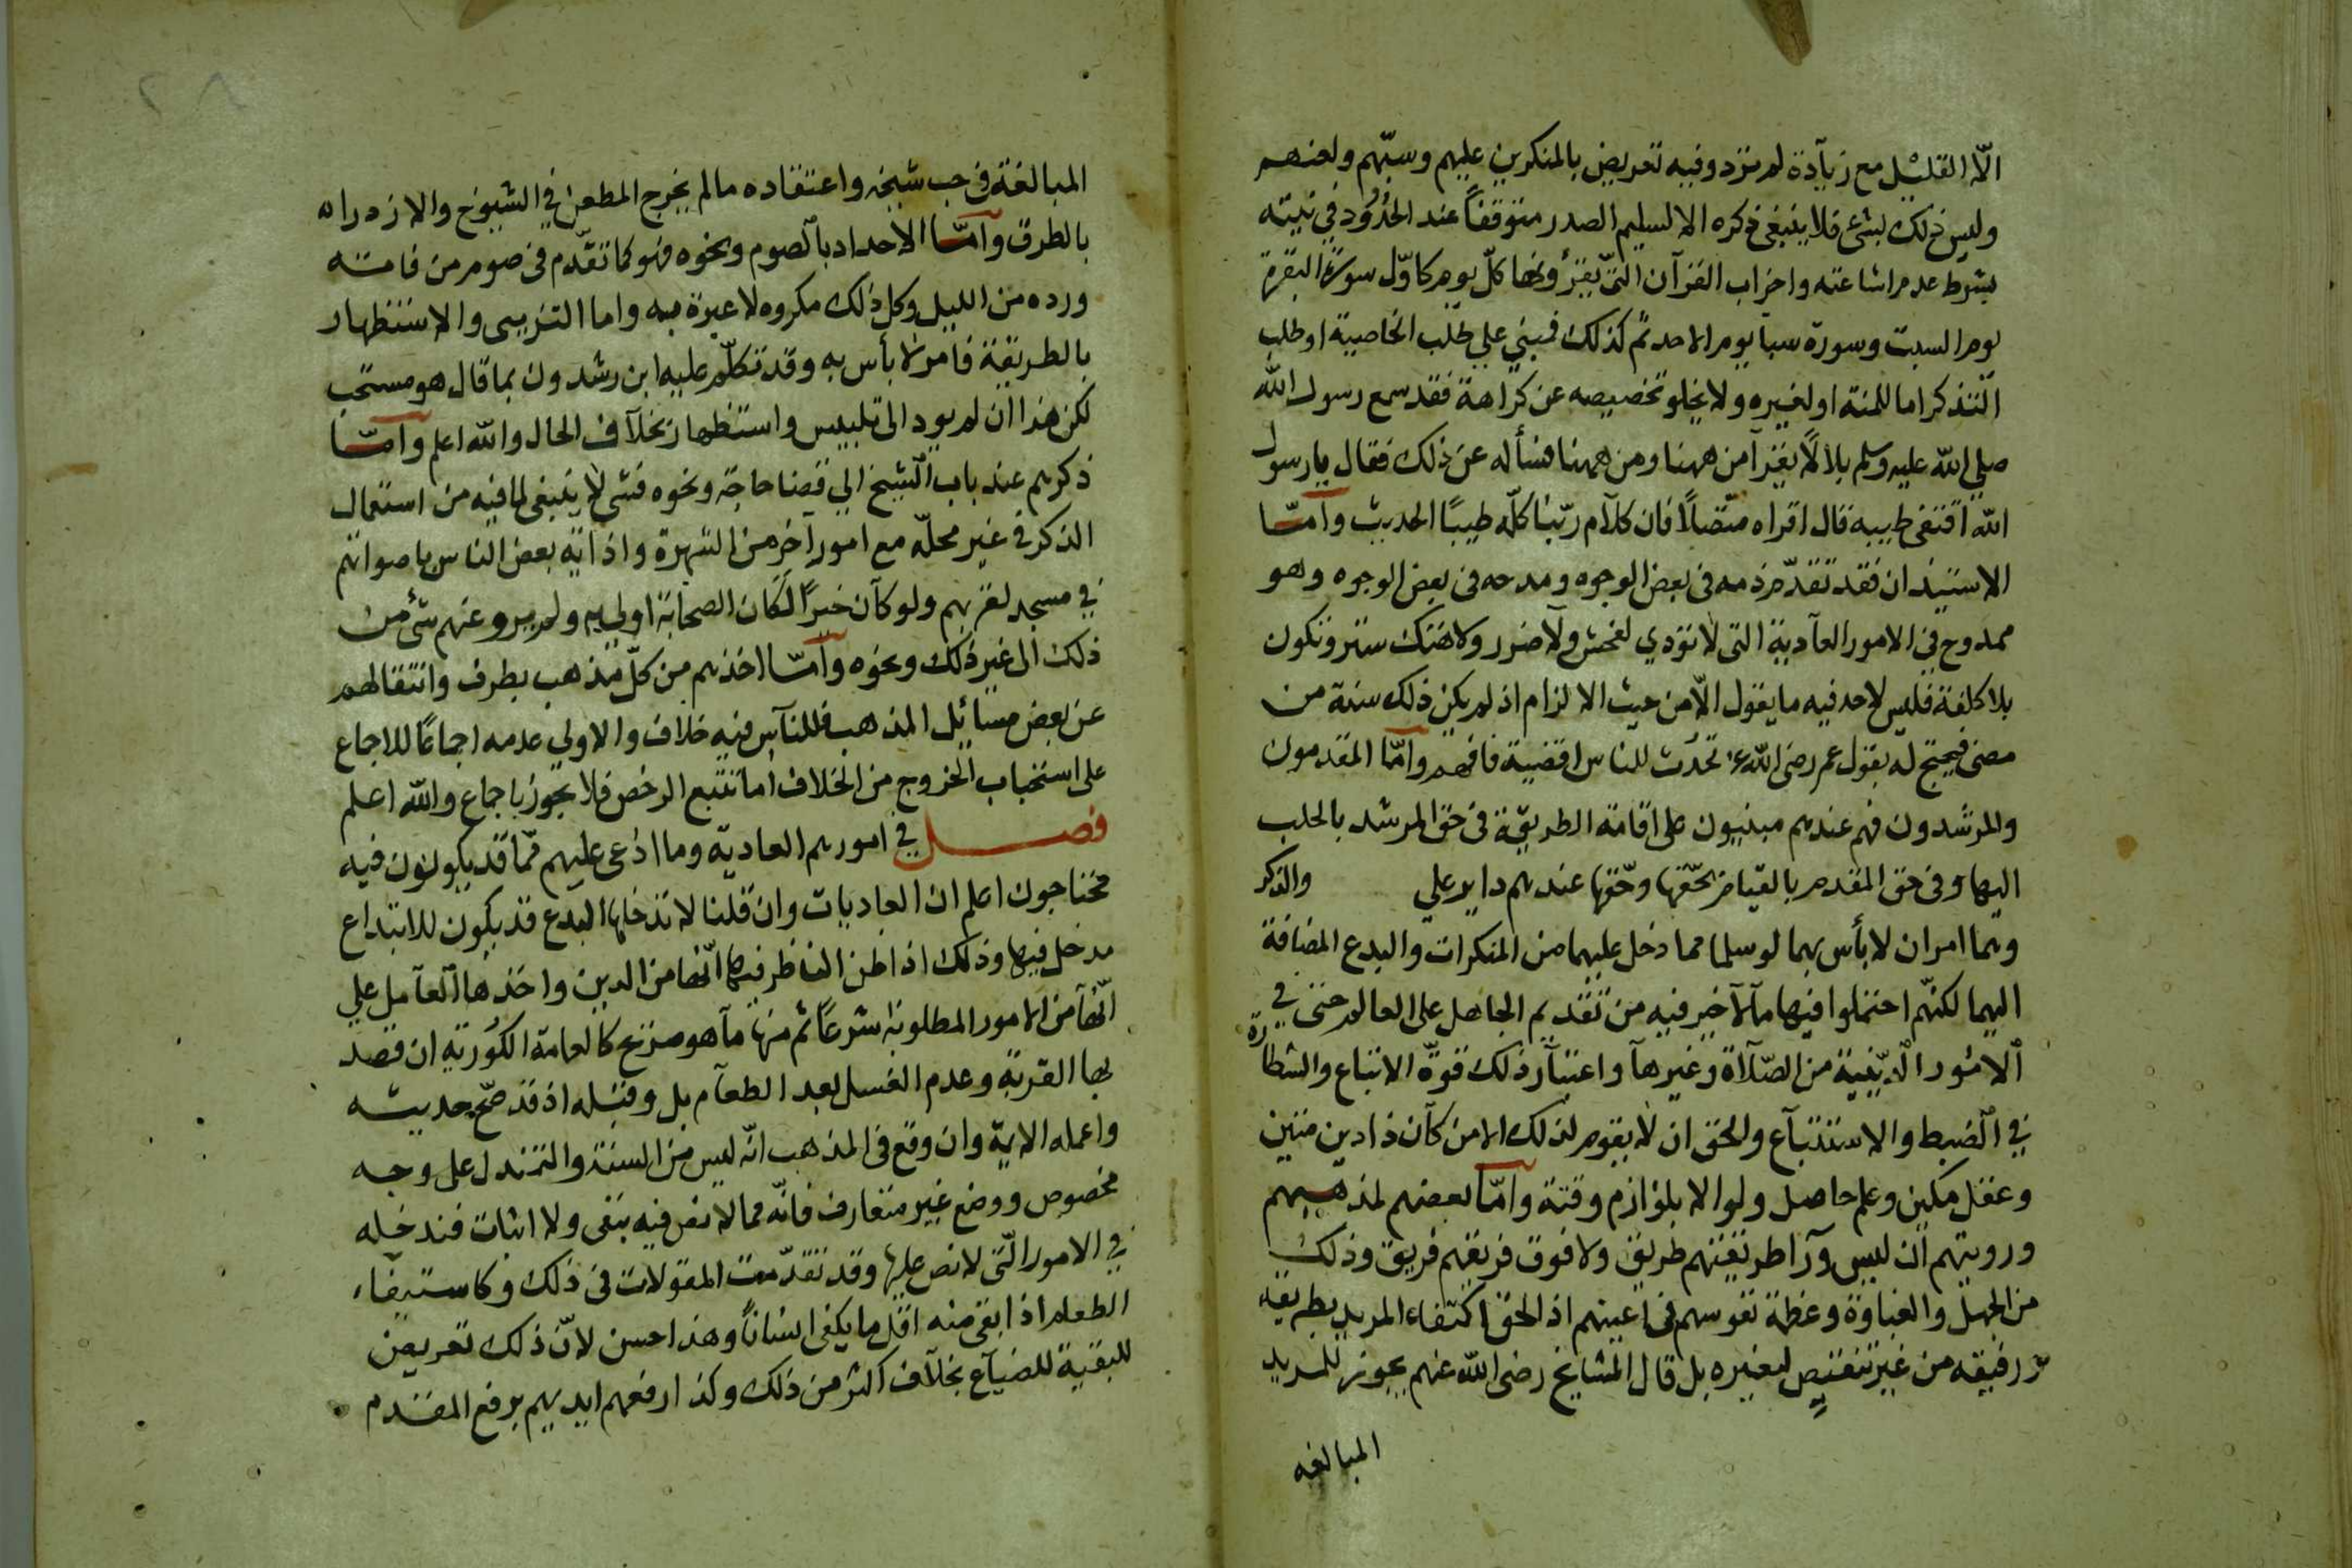 الّا القليل مع زيادة لم ترد وفيه تعريض بالمنكرين عليهم وسبّهم ولعنهم
وليس ذلك بشئ فلا ينبغى ذكره الا لسليم الصدر متوقفاً عند الحدود في نيته
بشرط عدم اشاعته واحزاب القرآن التى يقرؤنها كلّ يوم كاوّل سورة البقرة
يوم السبت وسورة سبا يوم الاحد ثم كذلك فمبني علي طلب الخاصية او طلب
التذكر اما للمنة او لغيره ولا يخلو تخصيصه عن كراهة فقد سمع رسول الله
صلي الله عليه وسلم بلالًا يقرأ من ههنا ومن ههنا فسأله عن ذلك فقال يا رسول
الله اقتفى طيبه قال اقراه متصلاً فان كلام ربّنا كلّه طيبًا الحديث وامّا
الاستيذان فقد تقدّم ذمه فى بعض الوجوه ومدحه فى بعض الوجوه وهو
ممدوح في الامور العادية التى لا تؤدي لفحش ولا ضرر ولا هتك ستر وتكون
بلا كلفة فليس لاحد فيه ما يقول الّا من حيث الالزام اذ لم يكن ذلك سنة من
مضى فيحتج له بقول عمر رضى الله ع تحدث للناس اقضية فافهم وامّا المقدمون
والمرشدون فهم عندهم مبنيون على اقامة الطريقة فى حق المرشد بالجلب
اليها وفى حق المقدم بالقيام بحقّها وحقّها عندهم داير علي والذكر
وهما امران لا بأس بهما لو سلما مما دخل عليهما من المنكرات والبدع المضافة
اليهما لكنّهم احتملوا فيها ما لا خير فيه من تقديم الجاهل على العالم حتى في
الامور الدّينية من الصّلاة وغيرها واعتبار ذلك قوّة الاتباع والشطارة
في الضبط والاستتباع والحق ان لا يقوم لذلك الا من كان ذا دين متين
وعقل مكين وعلم حاصل ولو الا بلوازم وقته وامّا تعصبهم لمذهبهم
ورويتهم ان ليس وراء طريقتهم طريق ولا فوق فريقهم فريق وذلك
من الجهل والغباوة وعظمة نفوسهم فى اعينهم اذ الحق اكتفاء المريد بطريقة
رفيقه من غير تنقيص لغيره بل قال المشايخ رضى الله عنهم يجوز للمريد
المبالغه
المبالغة فى حب شيخه واعتقاده ما لم يخرج المطعن في الشيوخ والازدراء
بالطرق وامّا الاحداد بالصوم ونحوه فهو كما تقدّم فى صوم من فاته
ورده من الليل وكل ذلك مكروه لا عبرة به واما التزيى والاستظهار
بالطريقة فامر لا بأس به وقد تكلّم عليه ابن رشد ون بما قال هو مستحب
لكن هذا ان لم يود الى تلبيس واستظهار بخلاف الحال والله اعلم وامّا
ذكرهم عند باب الشيخ الي قضا حاجة ونحوه فشى لا ينبغى لما فيه من استعمال
الذكر في غير محلّه مع امور آخر من الشهرة واذاية بعض الناس باصواتهم
في مسجد لقربهم ولو كان خيرًا لكان الصحابة اولي به ولم يرو عنهم شئ من
ذلك الى غير ذلك ونحوه وامّا اخذهم من كلّ مذهب بطرف وانتقالهم
عن بعض مسائل المذهب فللناس فيه خلاف والاولي عدمه اجماعًا للاجماع
على استحباب الخروج من الخلاف اما تتبع الرخص فلا يجوز باجماع والله اعلم
فصل في امورهم العادية وما ادعى عليهم ممّا قد يكونون فيه
محتاجون اعلم ان العاديات وان قلنا لا تدخلها البدع قد يكون للابتداع
مدخل فيها وذلك اذا ظن الناظر فيها انّها من الدين واخذها العامل علي
انّها من الامور المطلوبة شرعاً ثم منها ما هو صريح كالعامة الكورية ان قصد
بها القربة وعدم الغسل بعد الطعام بل وقبله اذ قد صحّ حديثه
واعمله الاية وان وقع فى المذهب انّه ليس من السنة والتمندل على وجه
مخصوص ووضع غير متعارف فانّه مما لا نص فيه بنفى ولا اثبات فندخله
في الامور الّتى لا نص عليها وقد تقدّمت المقولات فى ذلك وكاستيفاء
الطعام اذا بقى منه اقل ما يكفى انساناً وهذا حسن لانّ ذلك تعريض
للبقية للضياع بخلاف اكثر من ذلك وكذا رفعهم ايديهم برفع المقدم